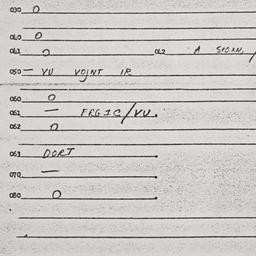 030 O
040 O
041 O 042 A SIGNN,
050 — VU VOINT IR
060 O
061 — FRGIC/VU.
062 O
063 DORT
070 —
080 O